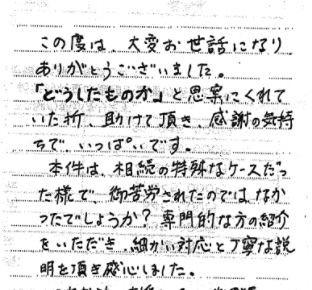 この度は、大変お世話になり
ありがとうございました。
「どうしたものか」と思案にくれて
いた折、助けて頂き、感謝の気持
ちで、いっぱいです。
本件は、相続の特殊なケースだっ
た様で、御苦労されたのではなか
ったでしょうか？専門的な方の紹介
をいただき、細かい対応と丁寧な説
明を頂き感心しました。